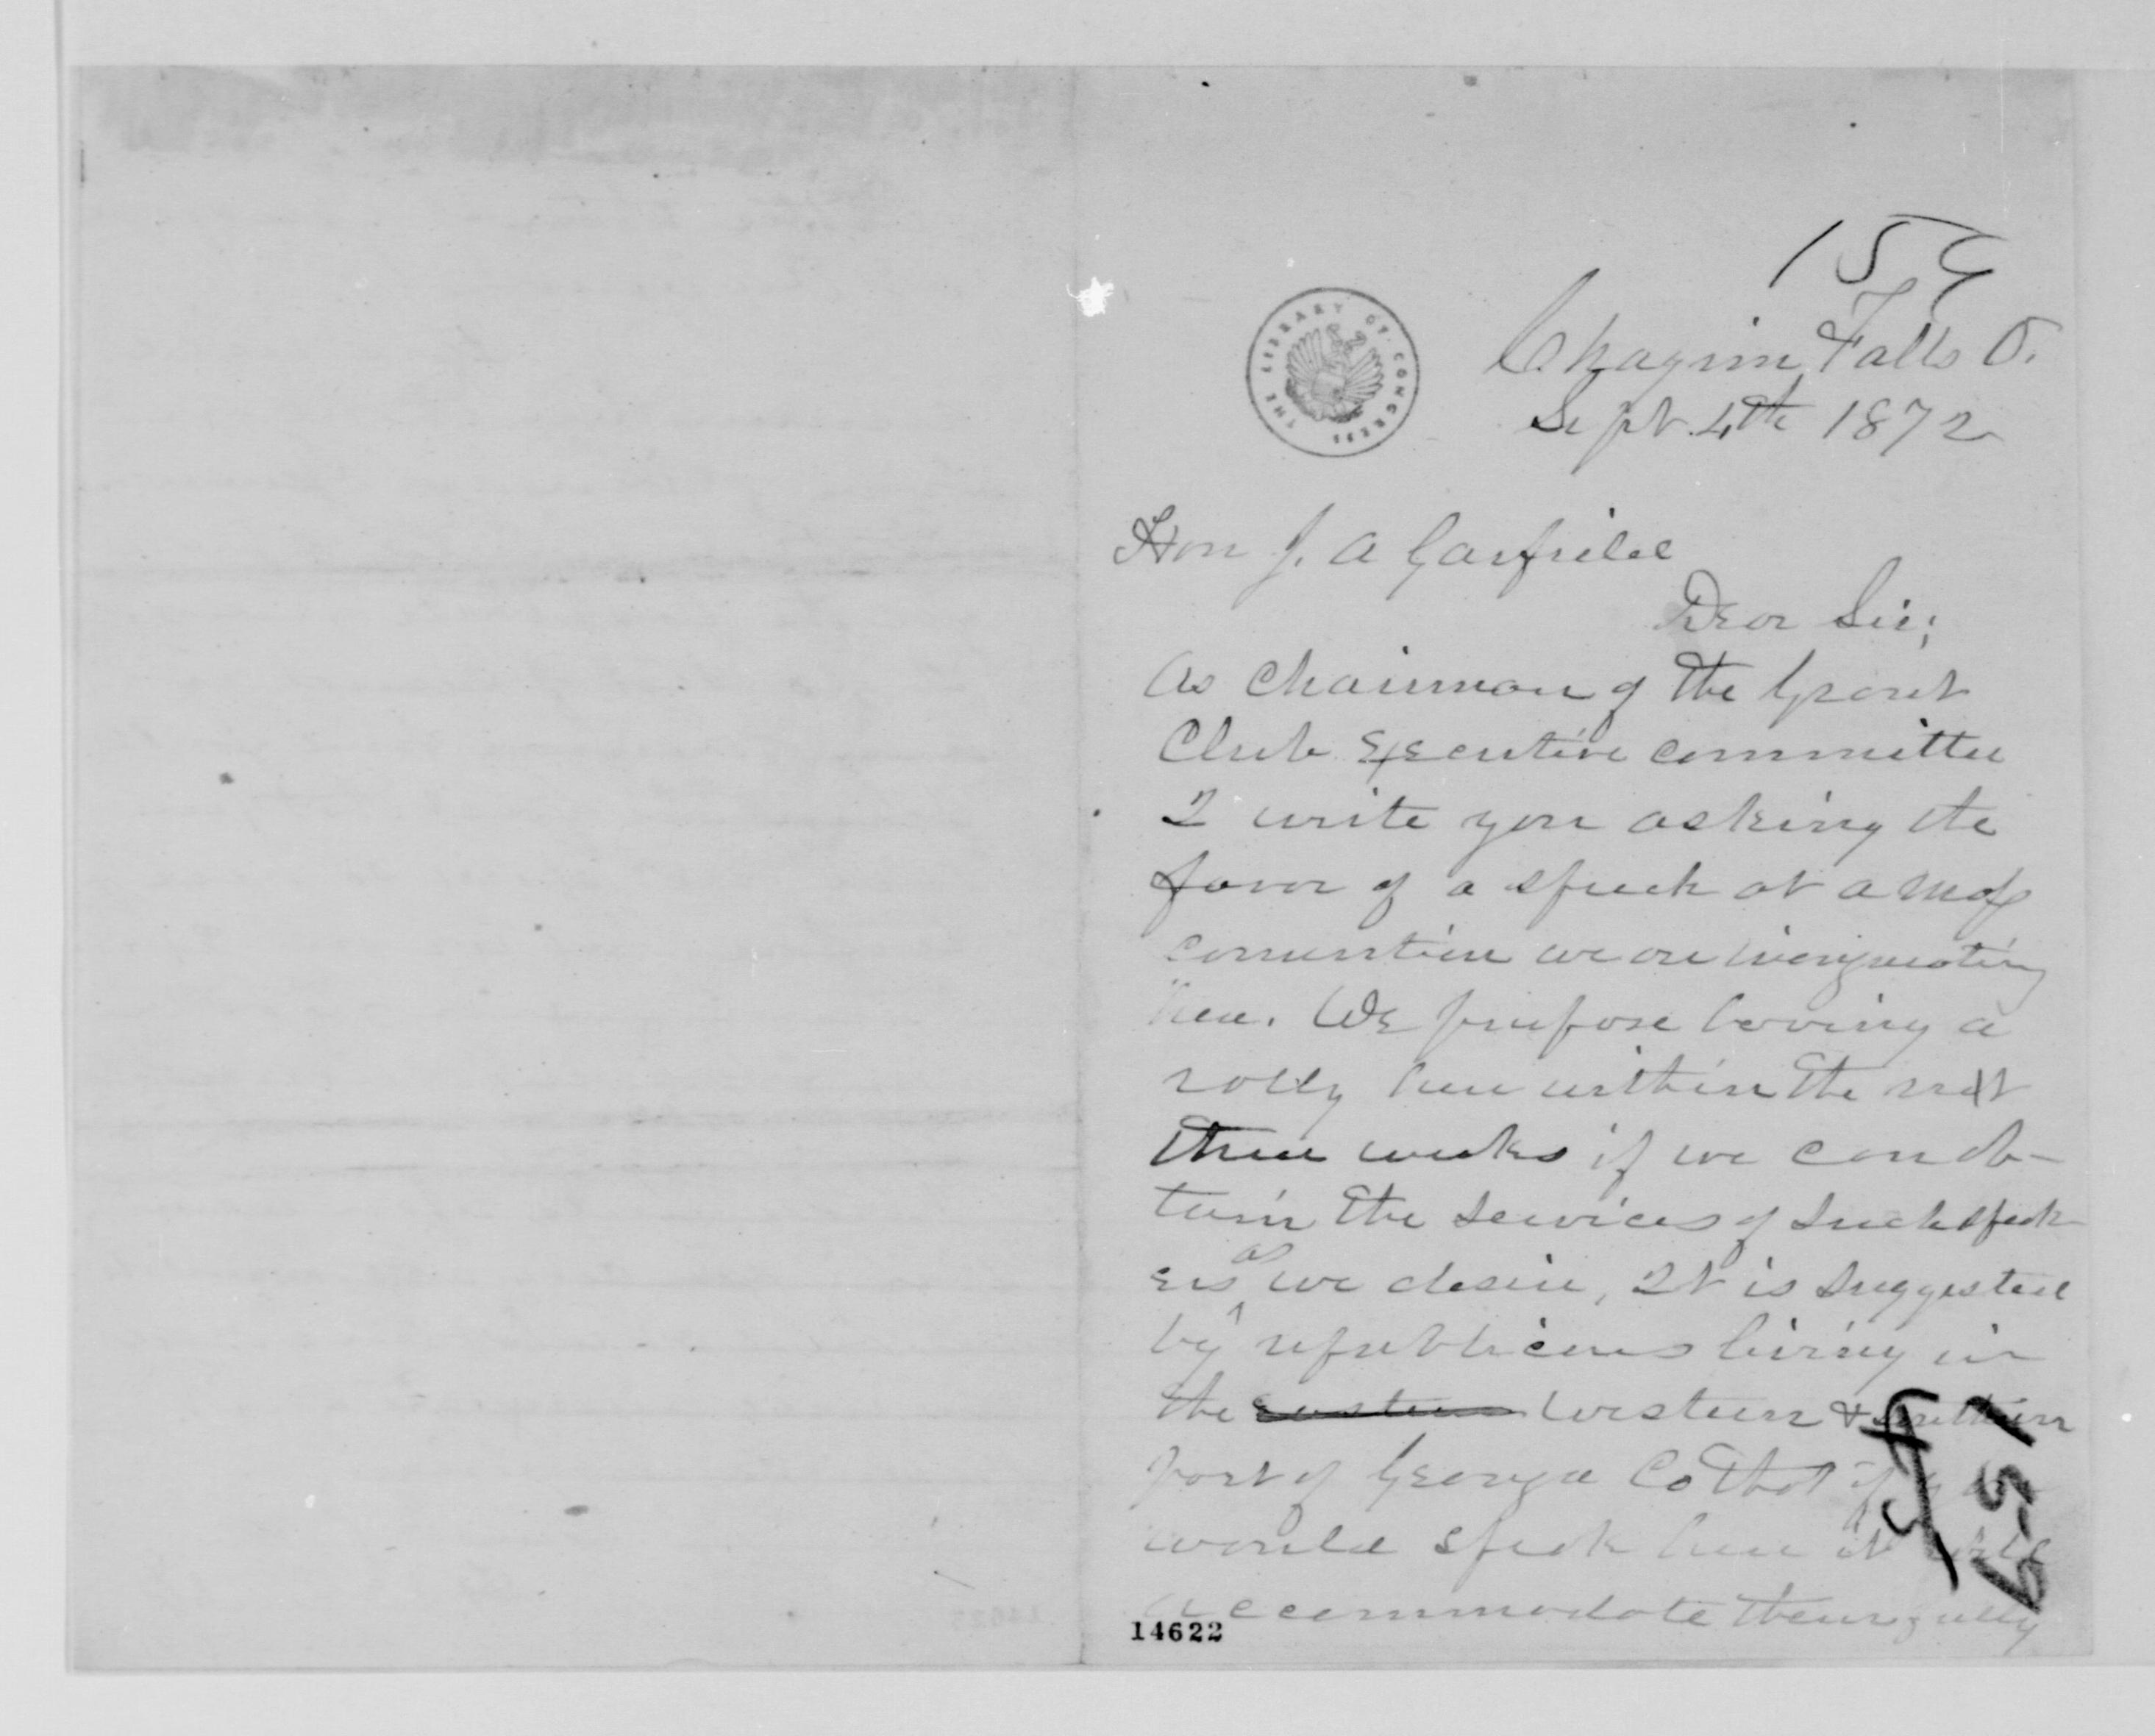 159
THE LIBRARY OF CONGRESS
Chagrin Falls O.
Sept. 4th 1872
Hon J. A Garfield
Dear Sir;
As Chairman of the Grant
Club Executive committee
I write you asking the
favor of a speech at a mass
convention we are inaugurating
here. We propose having a
rally here within the next
three weeks if we can ob-
tain the services of such speak
ers as we desire, It is suggested
by republicans living in
the eastern Western & Southern
part of Geauga Co that if
would speak here it would
accommodate them fully
159
14622